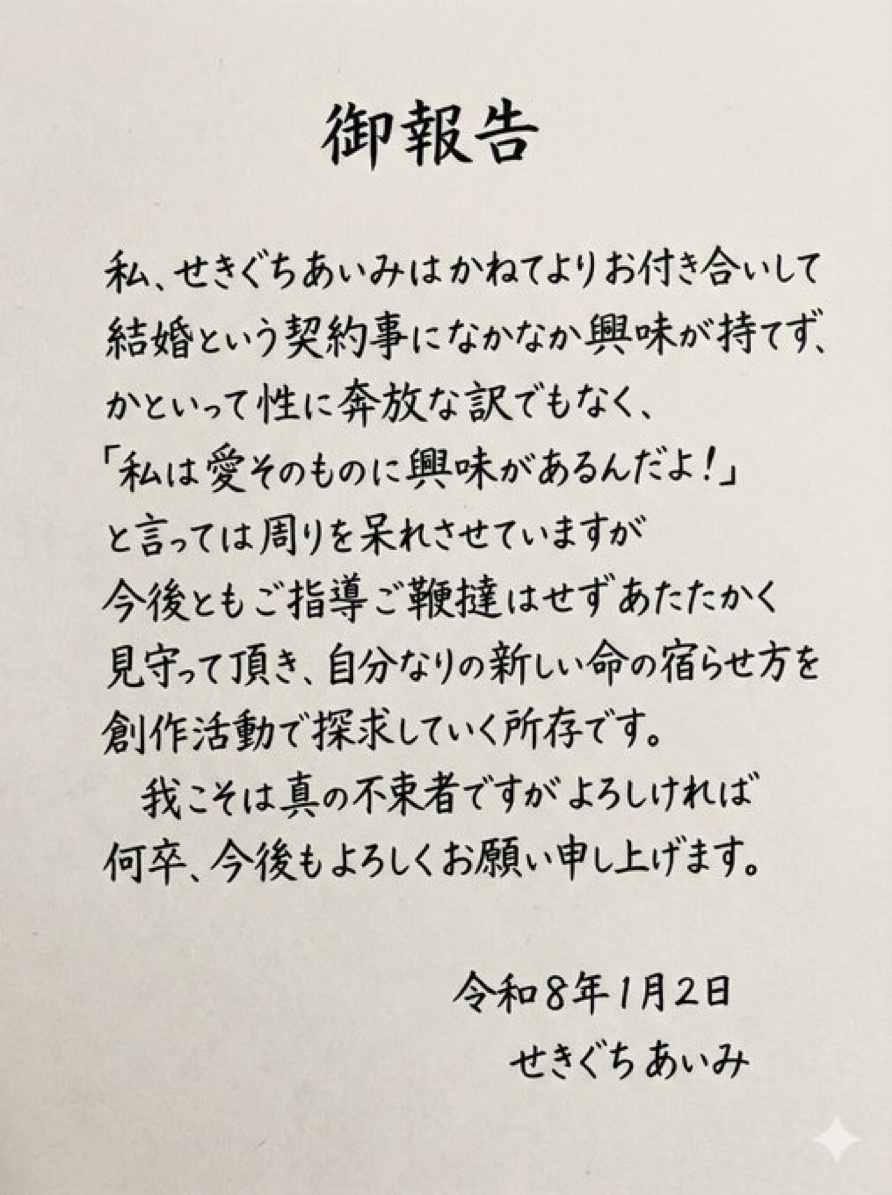 御報告
私、せきぐちあいみはかねてよりお付き合いして
結婚という契約事になかなか興味が持てず、
かといって性に奔放な訳でもなく、
「私は愛そのものに興味があるんだよ!」
と言っては周りを呆れさせていますが
今後ともご指導ご鞭撻はせずあたたかく
見守って頂き、自分なりの新しい命の宿らせ方を
創作活動で探求していく所存です。
我こそは真の不束者ですがよろしければ
何卒、今後もよろしくお願い申し上げます。
令和8年1月2日
せきぐちあいみ